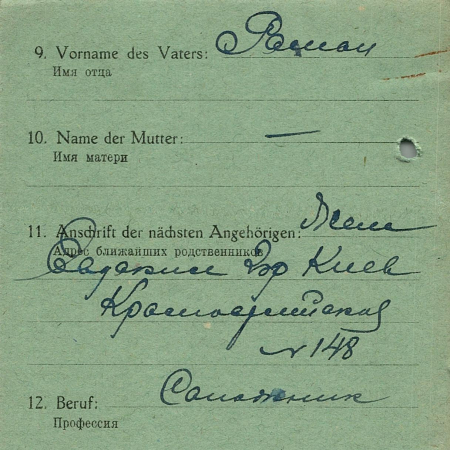 9. Vorname des Vaters: Роман
Имя отца
10. Name der Mutter: —
Имя матери
11. Anschrift der nächsten Angehörigen: Жена
Адрес ближайших родственников
гор Киев
Красноармейская
N 148
12. Beruf: Сапожник
Профессия